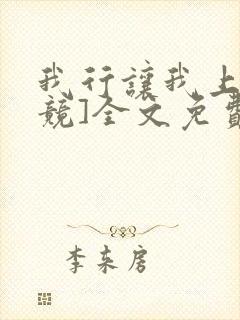 我行讓我上
競]全文免費
李來房